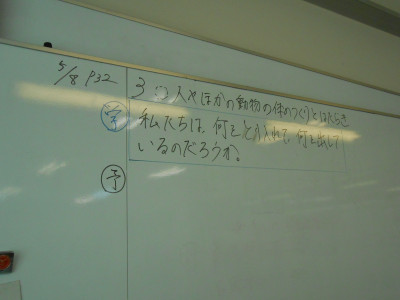 5/8 P32
3 人やほかの動物の体のつくりとはたらき
学 私たちは、何をとり入れて、何を出して
いるのだろうか。
予